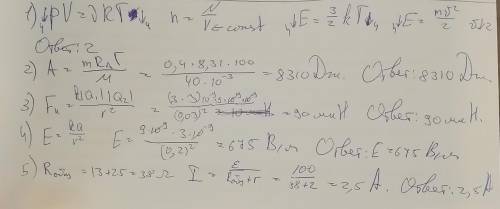 1) ↓pV = νkT↓ n = N/V = const ↓E = 3/2 kT↓ ↓E = mv²/2
Ответ: 2
2) A = mRΔT/μ = 0,4·8,31·100/40·10⁻³ = 8310 Дж. Ответ: 8310 Дж.
3) Fк = k|q₁||q₂|/r² = = 90 мкН Ответ: 90 мкН.
4) E = kq/r² E = 9·10⁹·3·10⁻⁹/(0,2)² = 675 В/м Ответ: E = 675 В/м
5) Rобщ = 13+25 = 38 Ω I = ε/Rобщ+r = 100/38+2 = 2,5 A. Ответ: 2,5 A